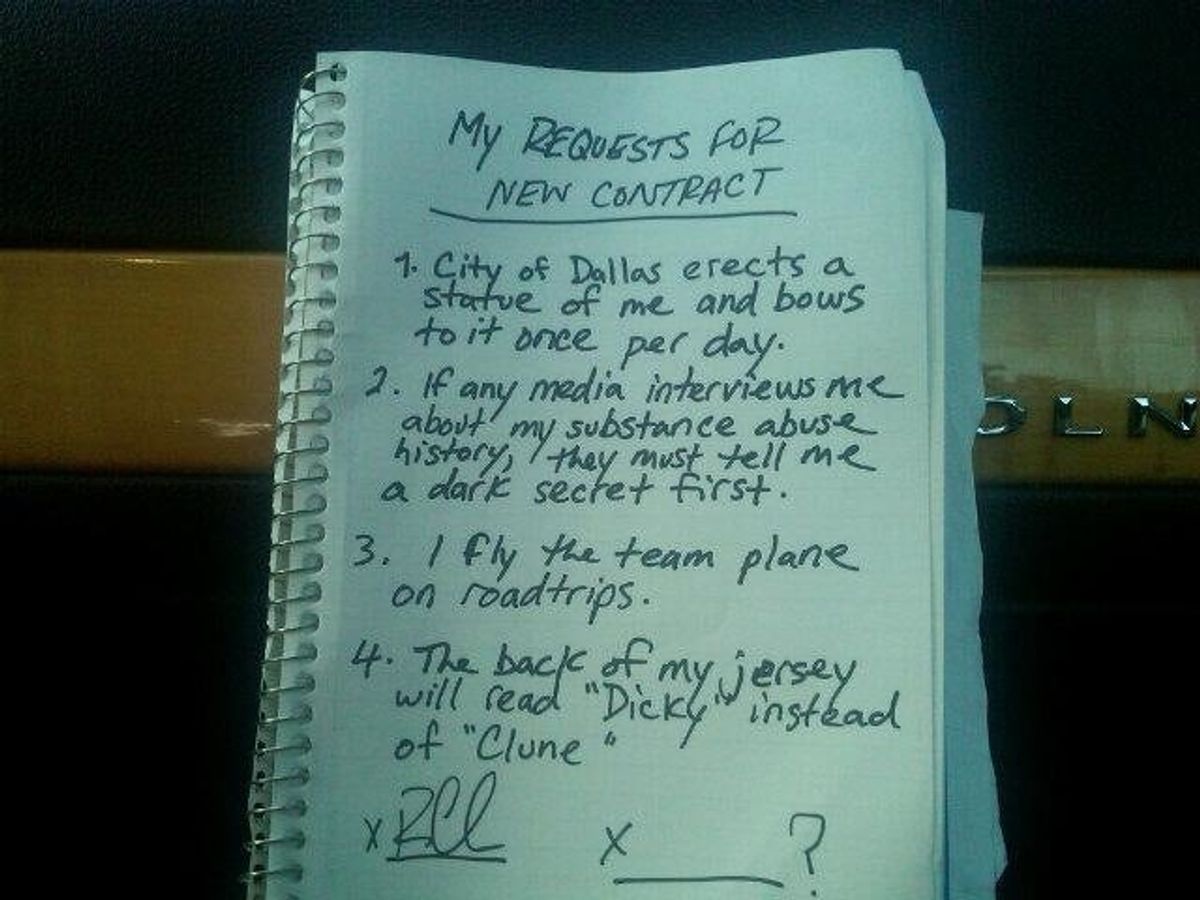 My REQUESTS FOR
NEW CONTRACT
1. City of Dallas erects a
statue of me and bows
to it once per day.
2. If any media interviews me
about my substance abuse
history, they must tell me
a dark secret first.
3. I fly the team plane
on roadtrips.
4. The back of my jersey
will read "Dicky" instead
of "Clune"
x RCl
x ?
OLN